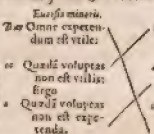 minoris.
Omne expeten-
dum est vtile:
Quædā voluptas
non est vtilis:
Ergo
Quædā voluptas
non est expe-
tenda.